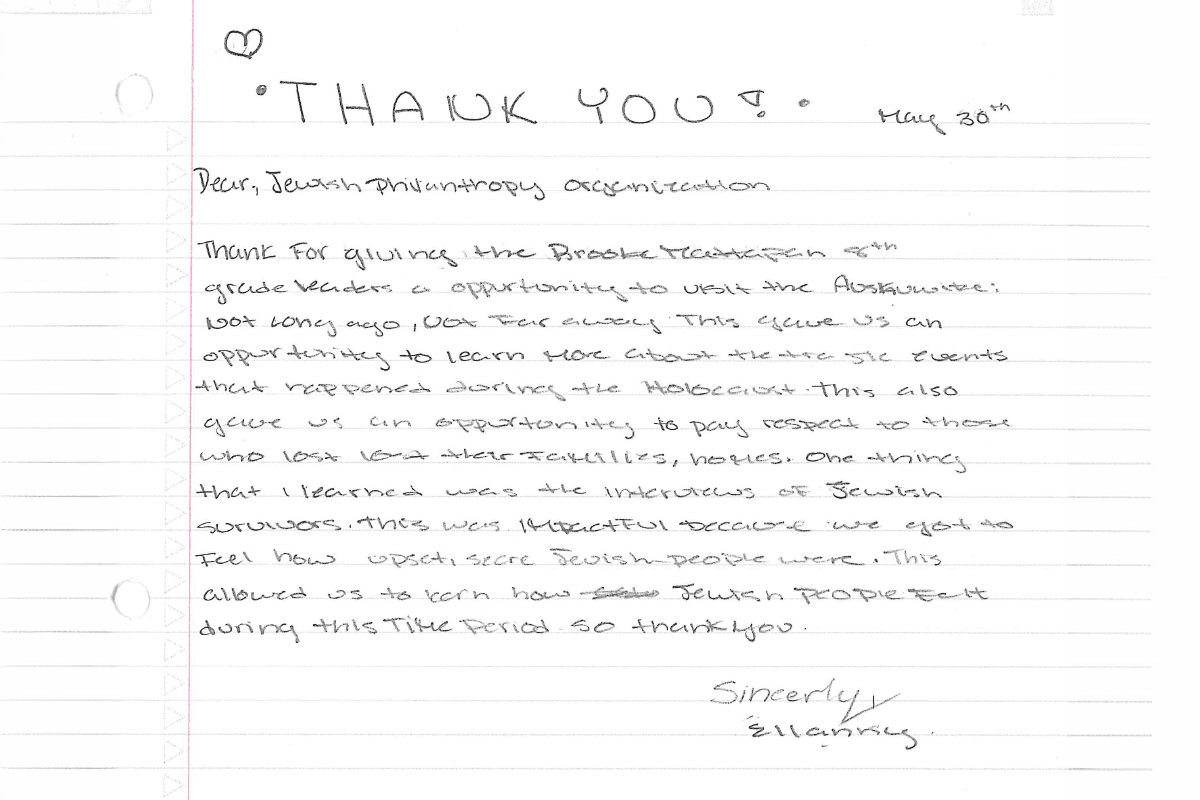 THANK YOU!
May 30th
Dear, Jewish philantropy organization
Thank For giving the Brooke Mattapan 8th
grade leaders a oppurtunity to visit the
Not Long ago, Not Far away. This gave us an
oppurtunity to learn More about the events
that happened during the Holocaust. This also
gave us an oppurtunity to pay respect to those
who lost lost their Families, homes. One thing
that I learned was the interviews of Jewish
survivors. This was IMpactFul because we got to
Feel how upset, Jewish people were. This
allowed us to learn how Jewish PEOPLE Felt
during this TiMe Period. So thank you.
Sincerly,